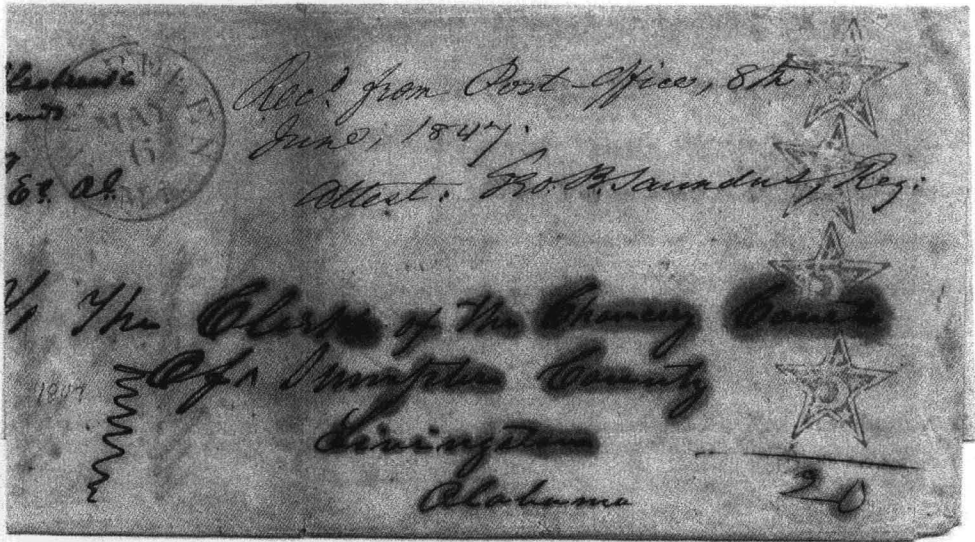 Rec'd from Post Office, 8th
June, 1847.
Attest: Geo. B. Saunders, Reg:
MAY
6
ALA.
5
5
5
5
To The Clerk of the Chancery Court
Of Sumpter County
Livingston
Alabama
20
1847